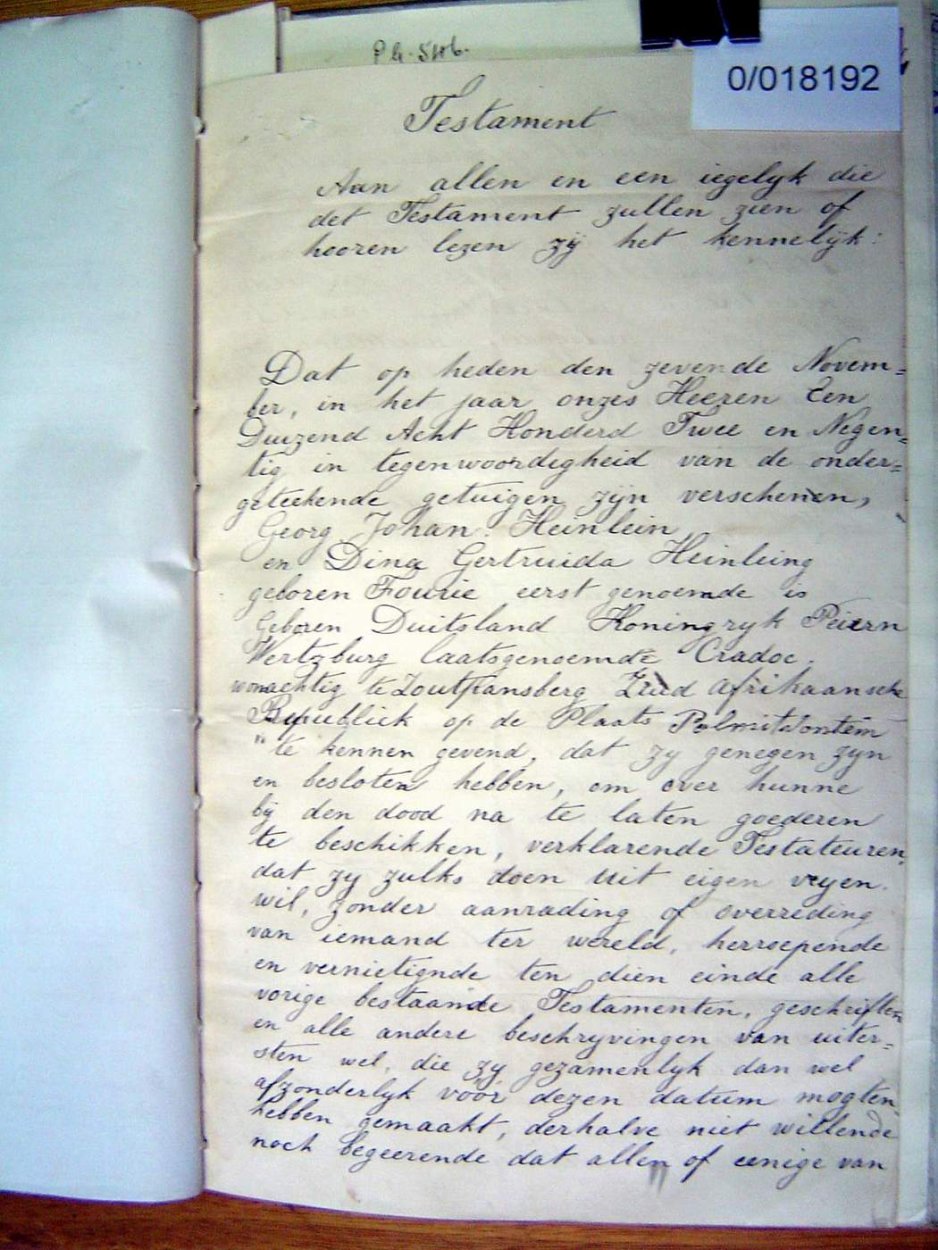 0/018192
Testament
Aan allen en een iegelyk die
det Testament zullen zien of
hooren lezen zÿ het kennelÿk:
Dat op heden den zevende Novem=
ber, in het jaar onzes Heeren Een
Duizend Acht Honderd Twee en Negen=
tig in tegenwoordigheid van de onder=
geteekende getuigen zÿn verschenen,
Georg Johan: Heinlein
en Dina Gertruida Heinleing
geboren Fourie eerst genoemde is
Geboren Duitsland Koningryk Peiern
Wertzburg laatsgenoemde Cradoc.
wonachtig te Zoutpansberg Zuid Afrikaansche
Republiek op de Plaats Palmitfontein
" te kennen gevend, dat zy genegen zyn
en besloten hebben, om over hunne
bÿ den dood na te laten goederen
te beschikken, verklarende Testateuren,
dat zy zulks doen uit eigen vryen.
wil, zonder aanrading of overreding
van iemand ter wereld, herroepende
en vernietignde ten dien einde alle
vorige bestaande Testamenten, geschriften
en alle andere beschryvingen van uiter=
sten wel, die zy gezamenlyk dan wel
afzonderlyk vóór dezen datum mogten
hebben gemaakt, derhalve niet willende
noch begeerende dat allen of eenige van